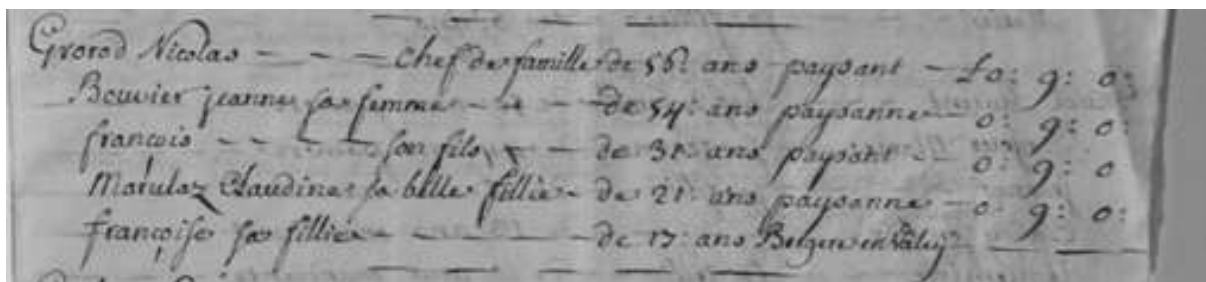 Grorod Nicolas - - - Chef de famille de 56: ans paysant - £0: 9: 0:
Bouvier jeanne sa femme - - - de 54: ans paysanne - 0: 9: 0:
françois - - - - son fils - - - de 31: ans paysant - 0: 9: 0
Marulaz Claudine sa belle fillie - de 21: ans paysanne - 0: 9: 0:
françoise sa fillie - - - - - de 17: ans Bergere en